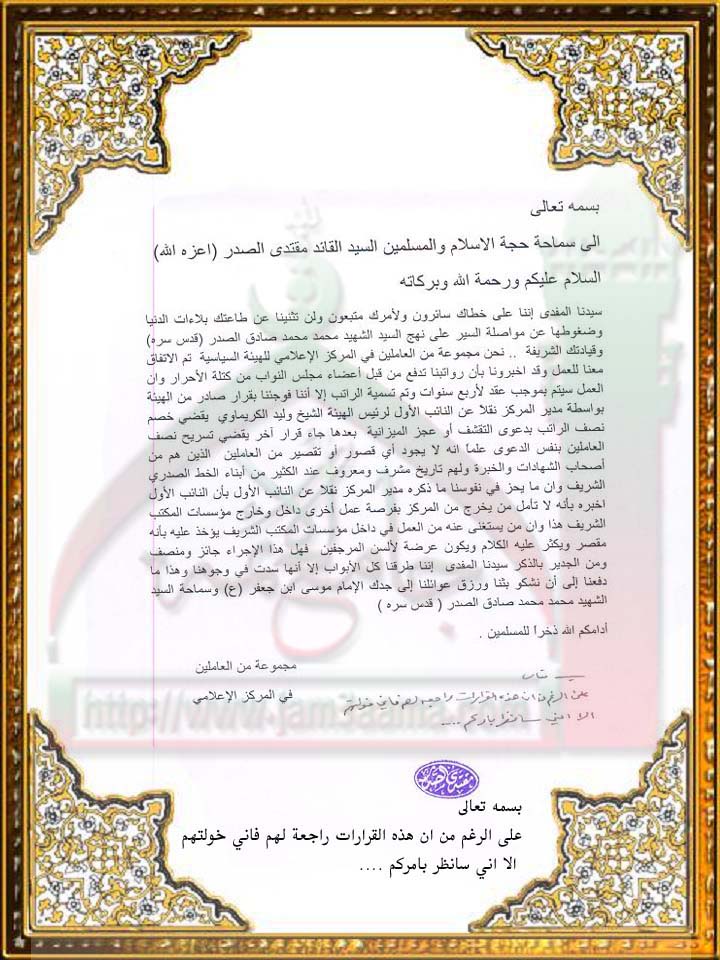 بسمه تعالى
الى سماحة حجة الاسلام والمسلمين السيد القائد مقتدى الصدر (اعزه الله)
السلام عليكم ورحمة الله وبركاته
سيدنا المفدى إننا على خطاك سائرون ولأمرك متبعون ولن تثنينا عن طاعتك بلاءات الدنيا
وضغوطها عن مواصلة السير على نهج السيد الشهيد محمد محمد صادق الصدر (قدس سره)
وقيادتك الشريفة .. نحن مجموعة من العاملين في المركز الإعلامي للهيئة السياسية تم الاتفاق
معنا للعمل وقد اخبرونا بأن رواتبنا تدفع من قبل أعضاء مجلس النواب من كتلة الأحرار وان
العمل سيتم بموجب عقد لأربع سنوات وتم تسمية الراتب إلا أننا فوجئنا بقرار صادر من الهيئة
بواسطة مدير المركز نقلا عن النائب الأول لرئيس الهيئة الشيخ وليد الكريماوي يقضي خصم
نصف الراتب بدعوى التقشف أو عجز الميزانية بعدها جاء قرار آخر يقضي تسريح نصف
العاملين بنفس الدعوى علماً انه لا يوجد أي قصور أو تقصير من العاملين الذين هم من
أصحاب الشهادات والخبرة ولهم تاريخ مشرف ومعروف عند الكثير من أبناء الخط الصدري
الشريف وان ما يحز في نفوسنا ما ذكره مدير المركز نقلا عن النائب الأول بأن النائب الأول
اخبره بأنه لا تأمل من يخرج من المركز بفرصة عمل أخرى داخل وخارج مؤسسات المكتب
الشريف هذا وان من يستغنى عنه من العمل في داخل مؤسسات المكتب الشريف يؤخذ عليه بأنه
مقصر ويكثر عليه الكلام ويكون عرضة لألسن المرجفين فهل هذا الإجراء جائز ومنصف
ومن الجدير بالذكر سيدنا المفدى إننا طرقنا كل الأبواب إلا أنها سدت في وجوهنا وهذا ما
دفعنا إلى أن نشكو بثنا ورزق عوائلنا إلى جدك الإمام موسى ابن جعفر (ع) وسماحة السيد
الشهيد محمد محمد صادق الصدر ( قدس سره )
أدامكم الله ذخراً للمسلمين .
مجموعة من العاملين
في المركز الإعلامي
على الرغم من ان هذه القرارات راجعة لهم فاني خولتهم
الا اني سانظر بامركم ....
http://www.jam3aama.com
بسمه تعالى
على الرغم من ان هذه القرارات راجعة لهم فاني خولتهم
الا اني سانظر بامركم ....